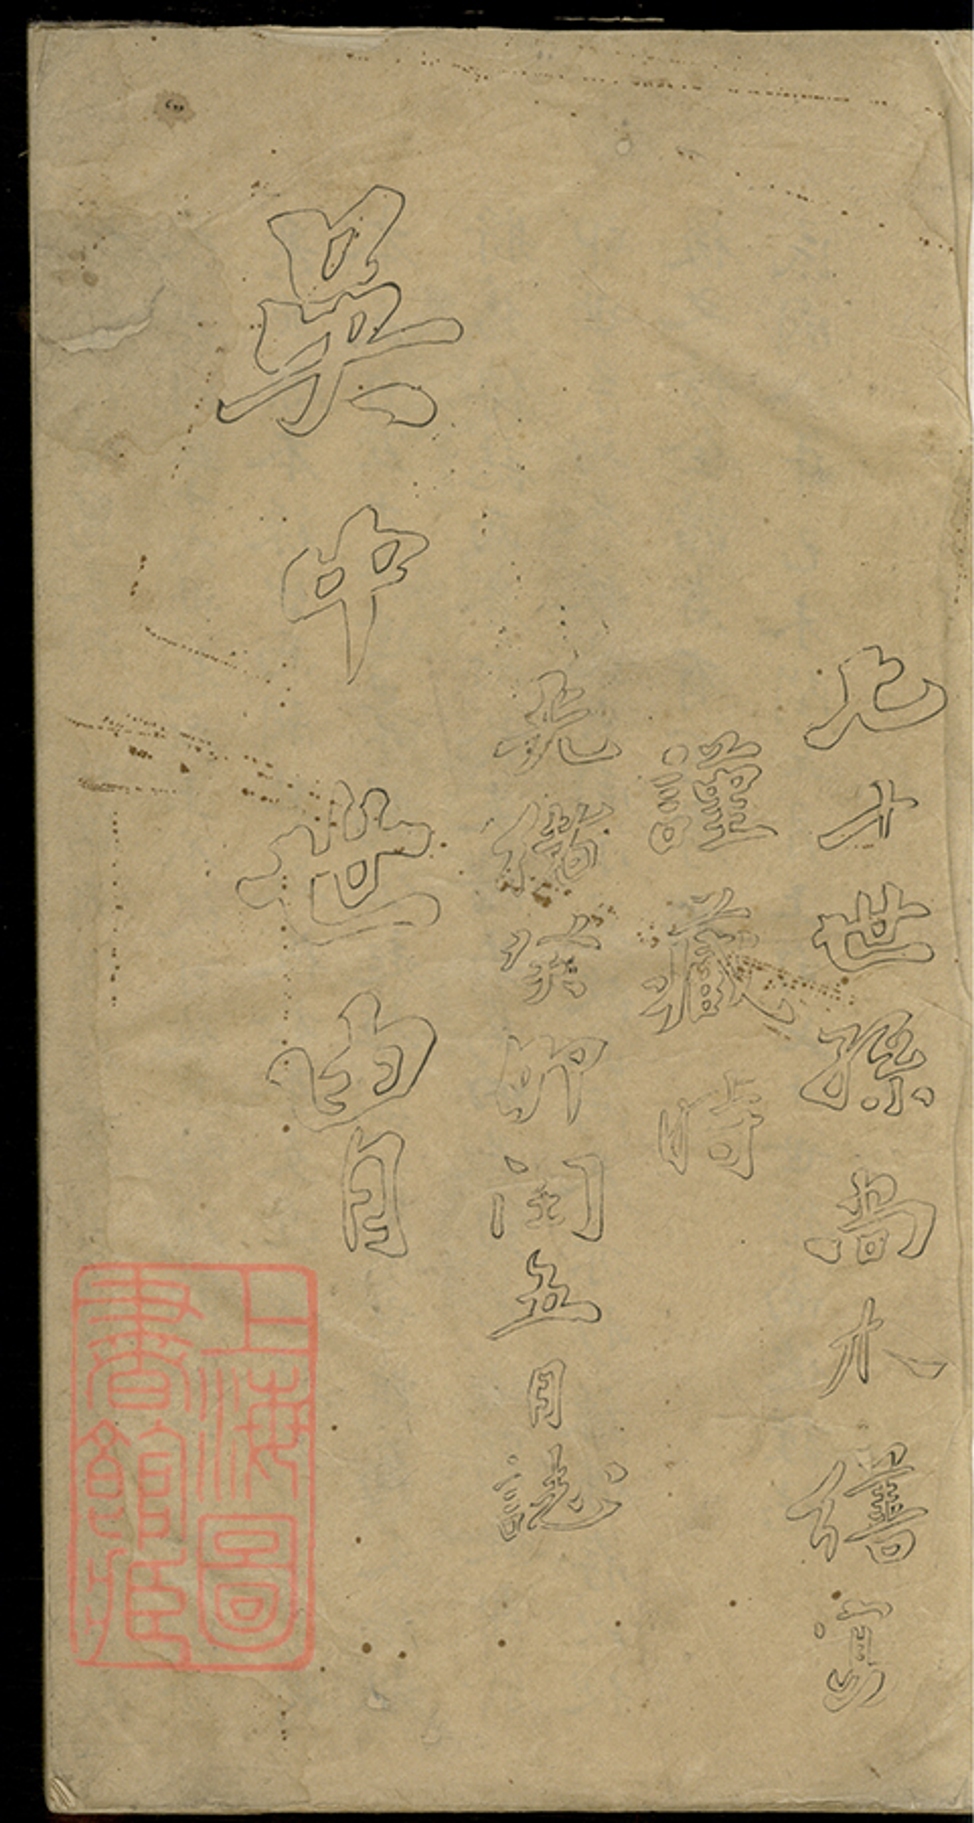 十世孫尚木繕寫
謹藏時
光緒癸卯閏五月誌
吳中世胄
上海圖書館藏